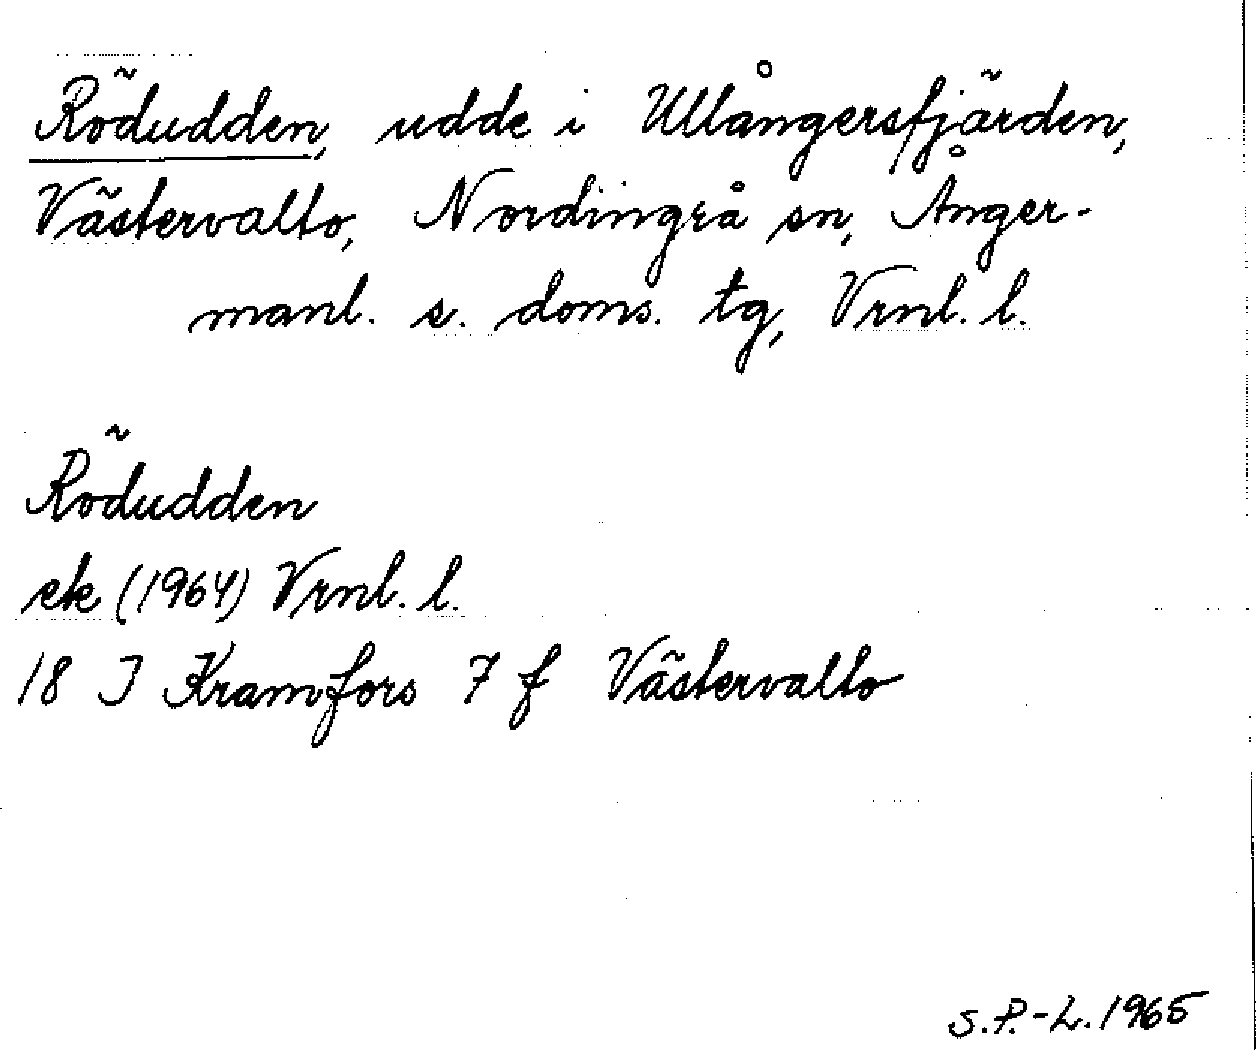 Rödudden, udde i Ullångersfjärden,
Västervalto, Nordingrå sn, Ånger-
manl. s. doms. tg, Vrnl. l.
Rödudden
ek (1964) Vrnl. l.
18 J Kramfors 7 f Västervalto
S.P.-L. 1965